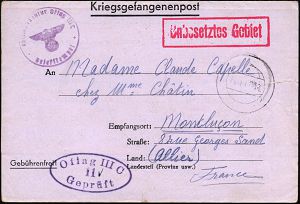 Kriegsgefangenenpost
Unbesetztes Gebiet
An Madame Claude Capelle
chez Mme Châtin
Empfangsort: Montluçon
Straße: 8 rue Georges Sand
Land: (Allier)
Landesteil (Provinz usw.)
France
Gebührenfrei!
Oflag III C
11
Geprüft